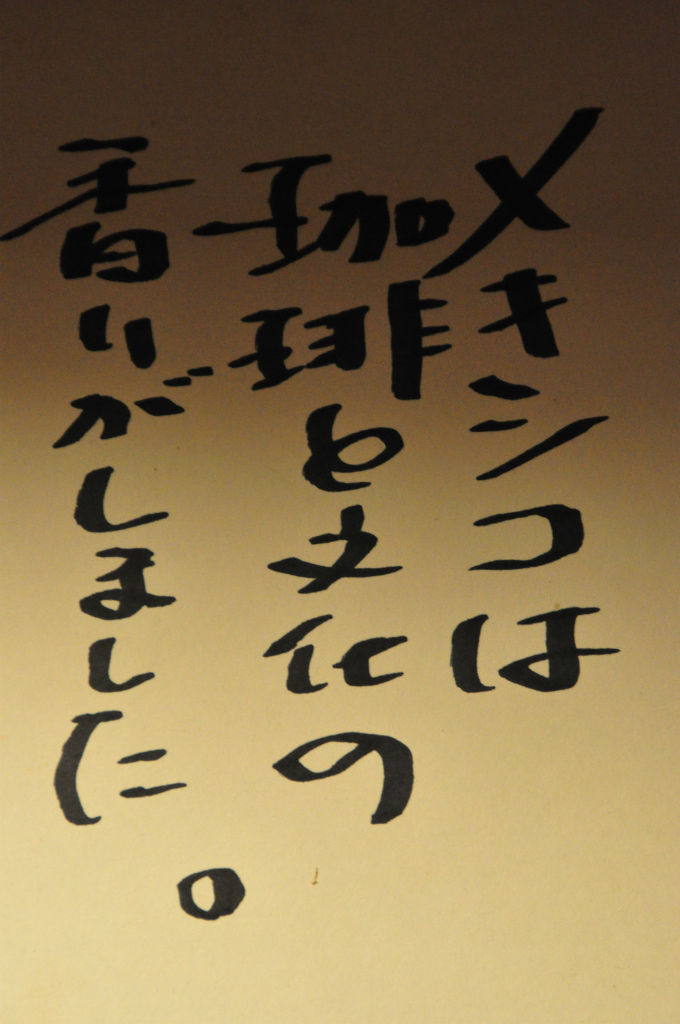 メキシコは
珈琲と文化の
香りがしました。